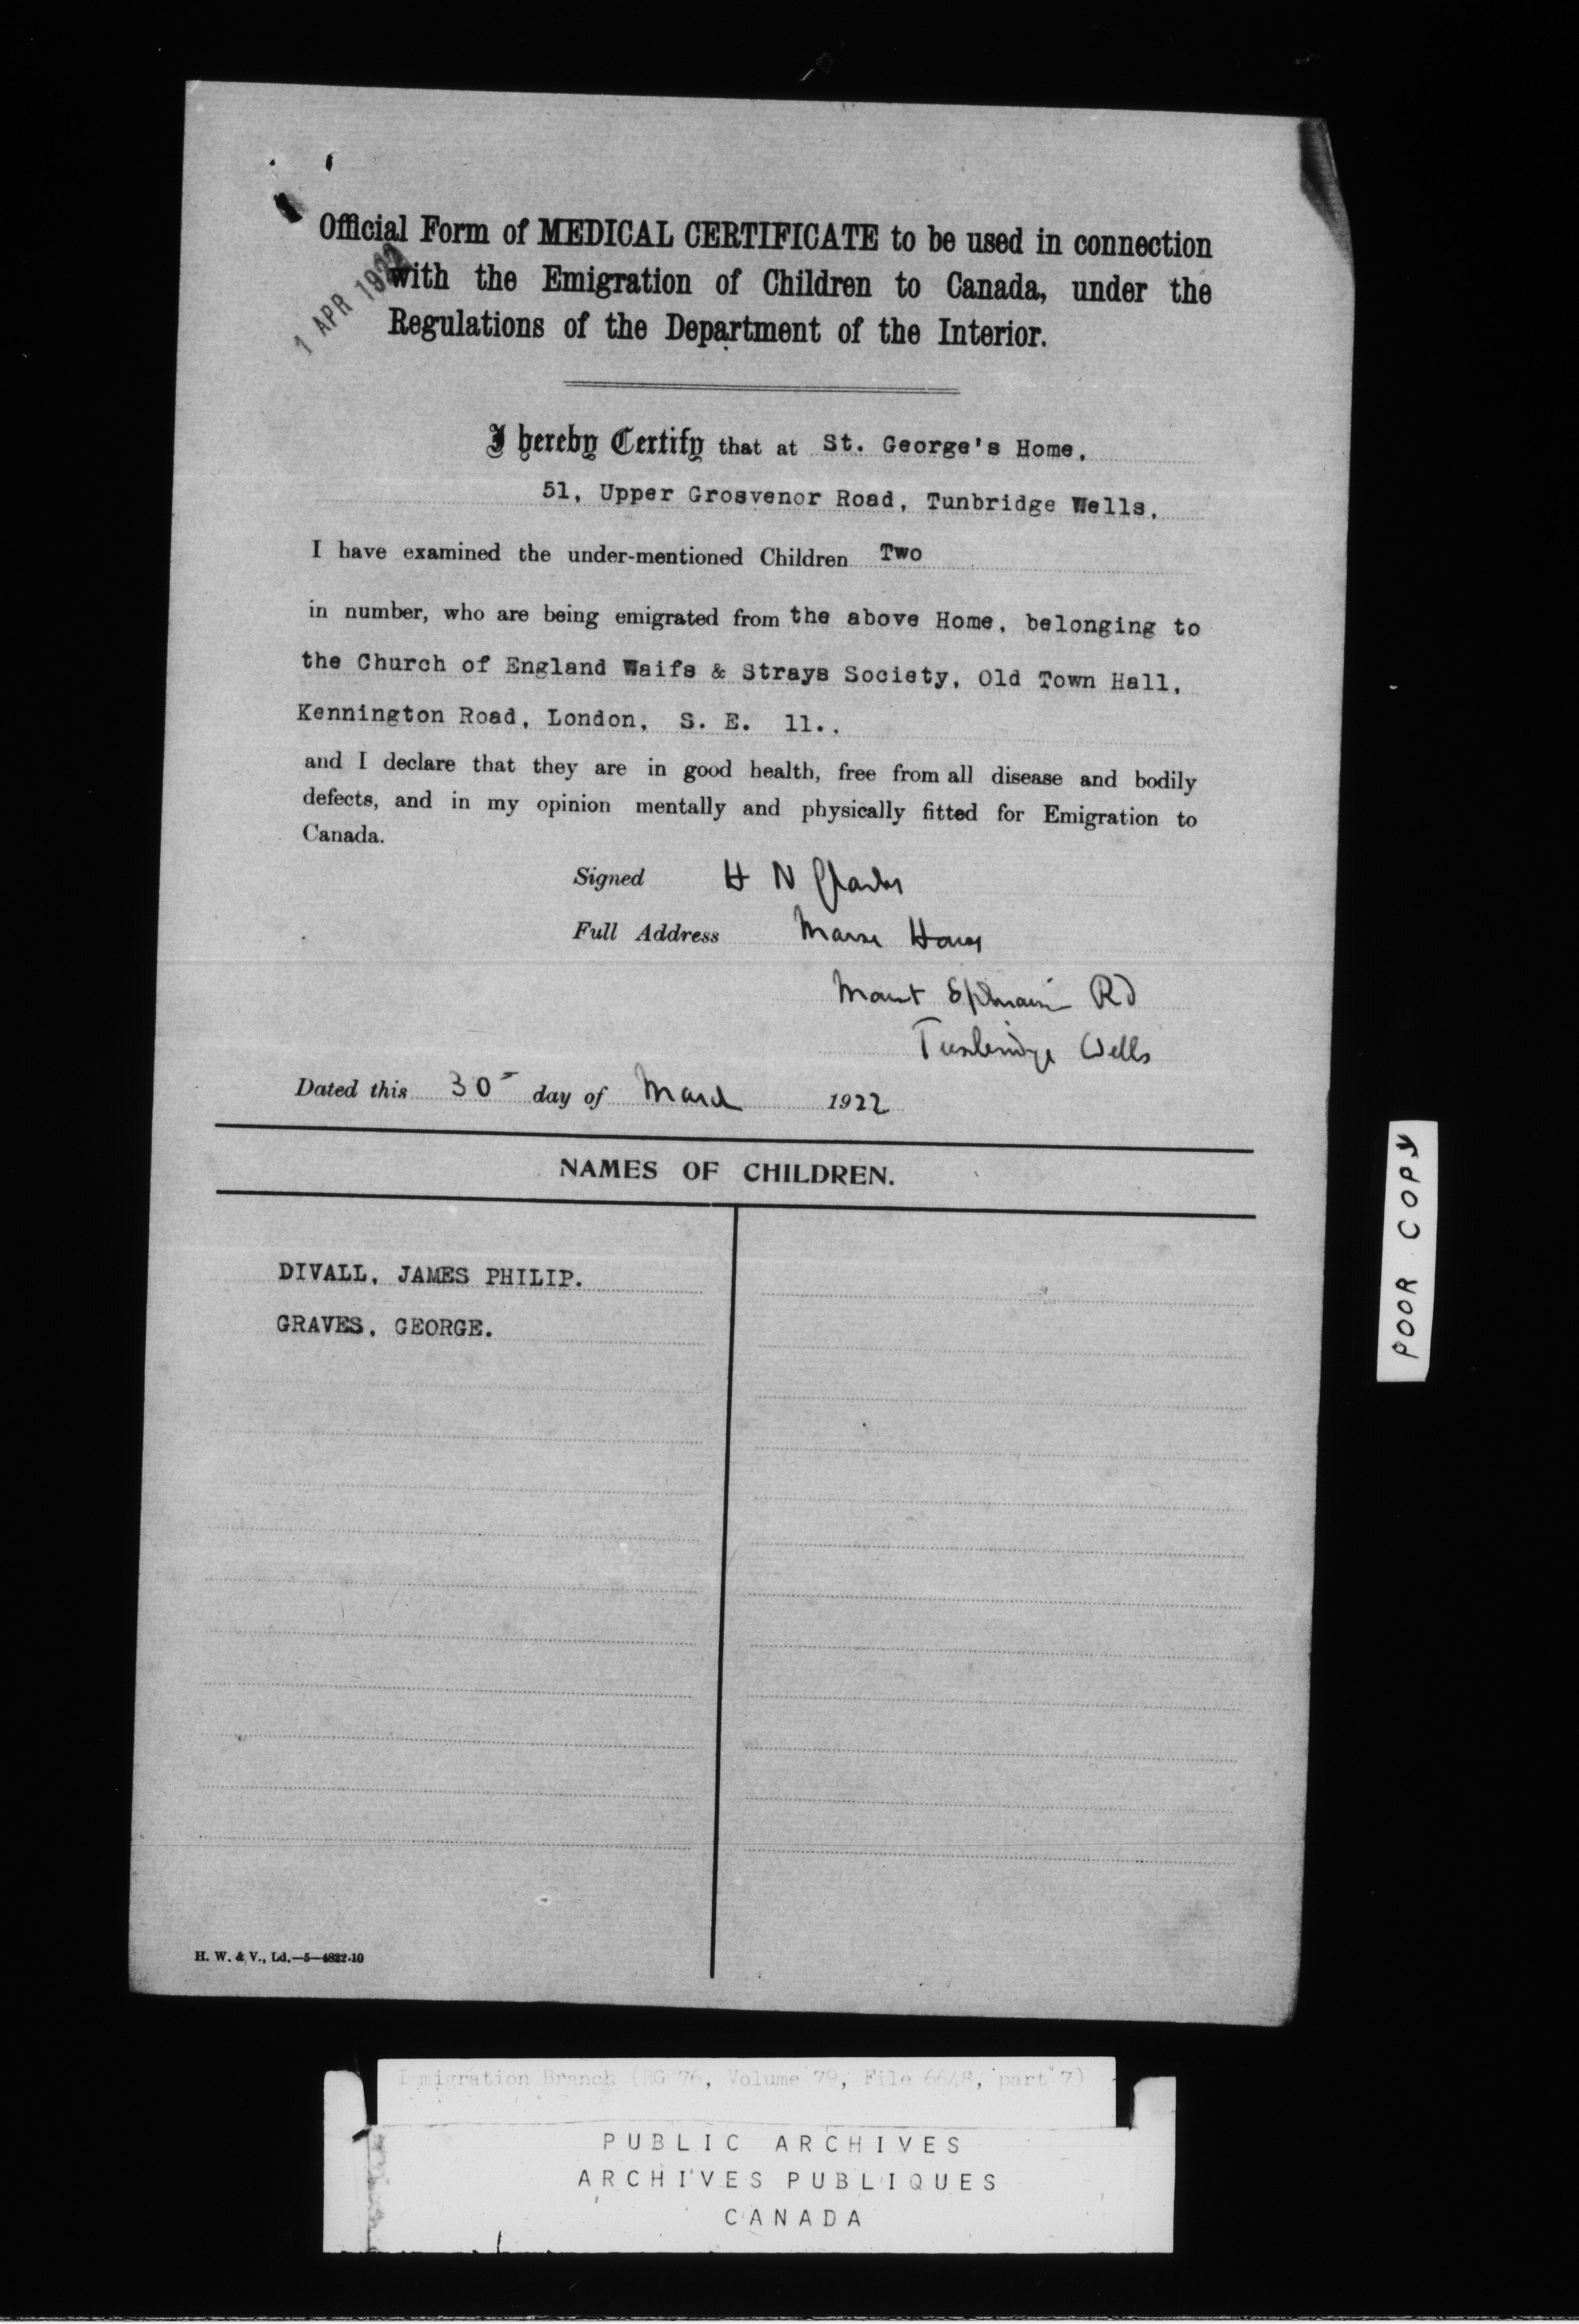 Official Form of MEDICAL CERTIFICATE to be used in connection
with the Emigration of Children to Canada, under the
Regulations of the Department of the Interior.
1 APR 1922
I hereby Certify that at St. George's Home,
51, Upper Grosvenor Road, Tunbridge Wells,
I have examined the under-mentioned Children Two
in number, who are being emigrated from the above Home, belonging to
the Church of England Waifs & Strays Society, Old Town Hall,
Kennington Road, London, S. E. 11.,
and I declare that they are in good health, free from all disease and bodily
defects, and in my opinion mentally and physically fitted for Emigration to
Canada.
Signed H N
Full Address House
Mount Ephraim Rd
Tunbridge Wells
Dated this 30 day of March 1922
NAMES OF CHILDREN.
DIVALL, JAMES PHILIP.
GRAVES, GEORGE.
H. W. & V., Ld.—5—4822-10
POOR COPY
Immigration Branch (RG 76, Volume 79, File 6648, part 7)
PUBLIC ARCHIVES
ARCHIVES PUBLIQUES
CANADA